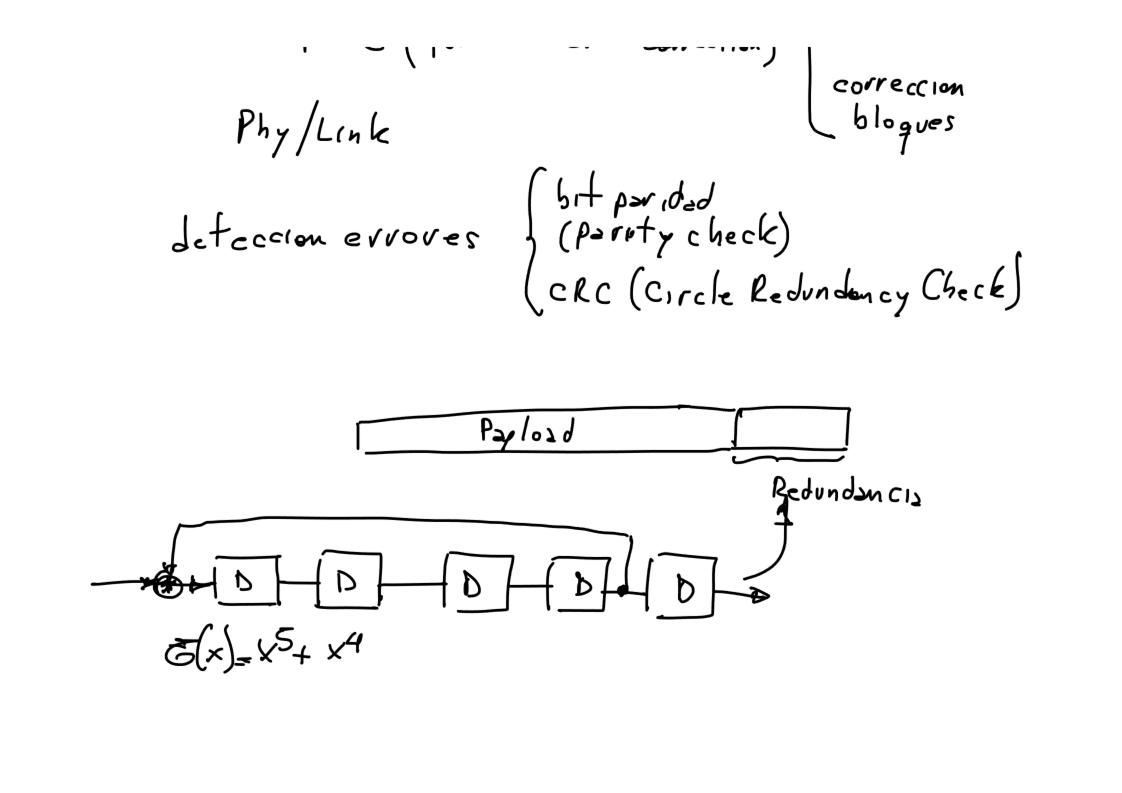 correccion
bloques
Phy/Link
deteccion errores
bit paridad
(Parity check)
CRC (Circle Redundancy Check)
Payload
Redundancia
D D D D D
G(x)=x⁵+ x⁴